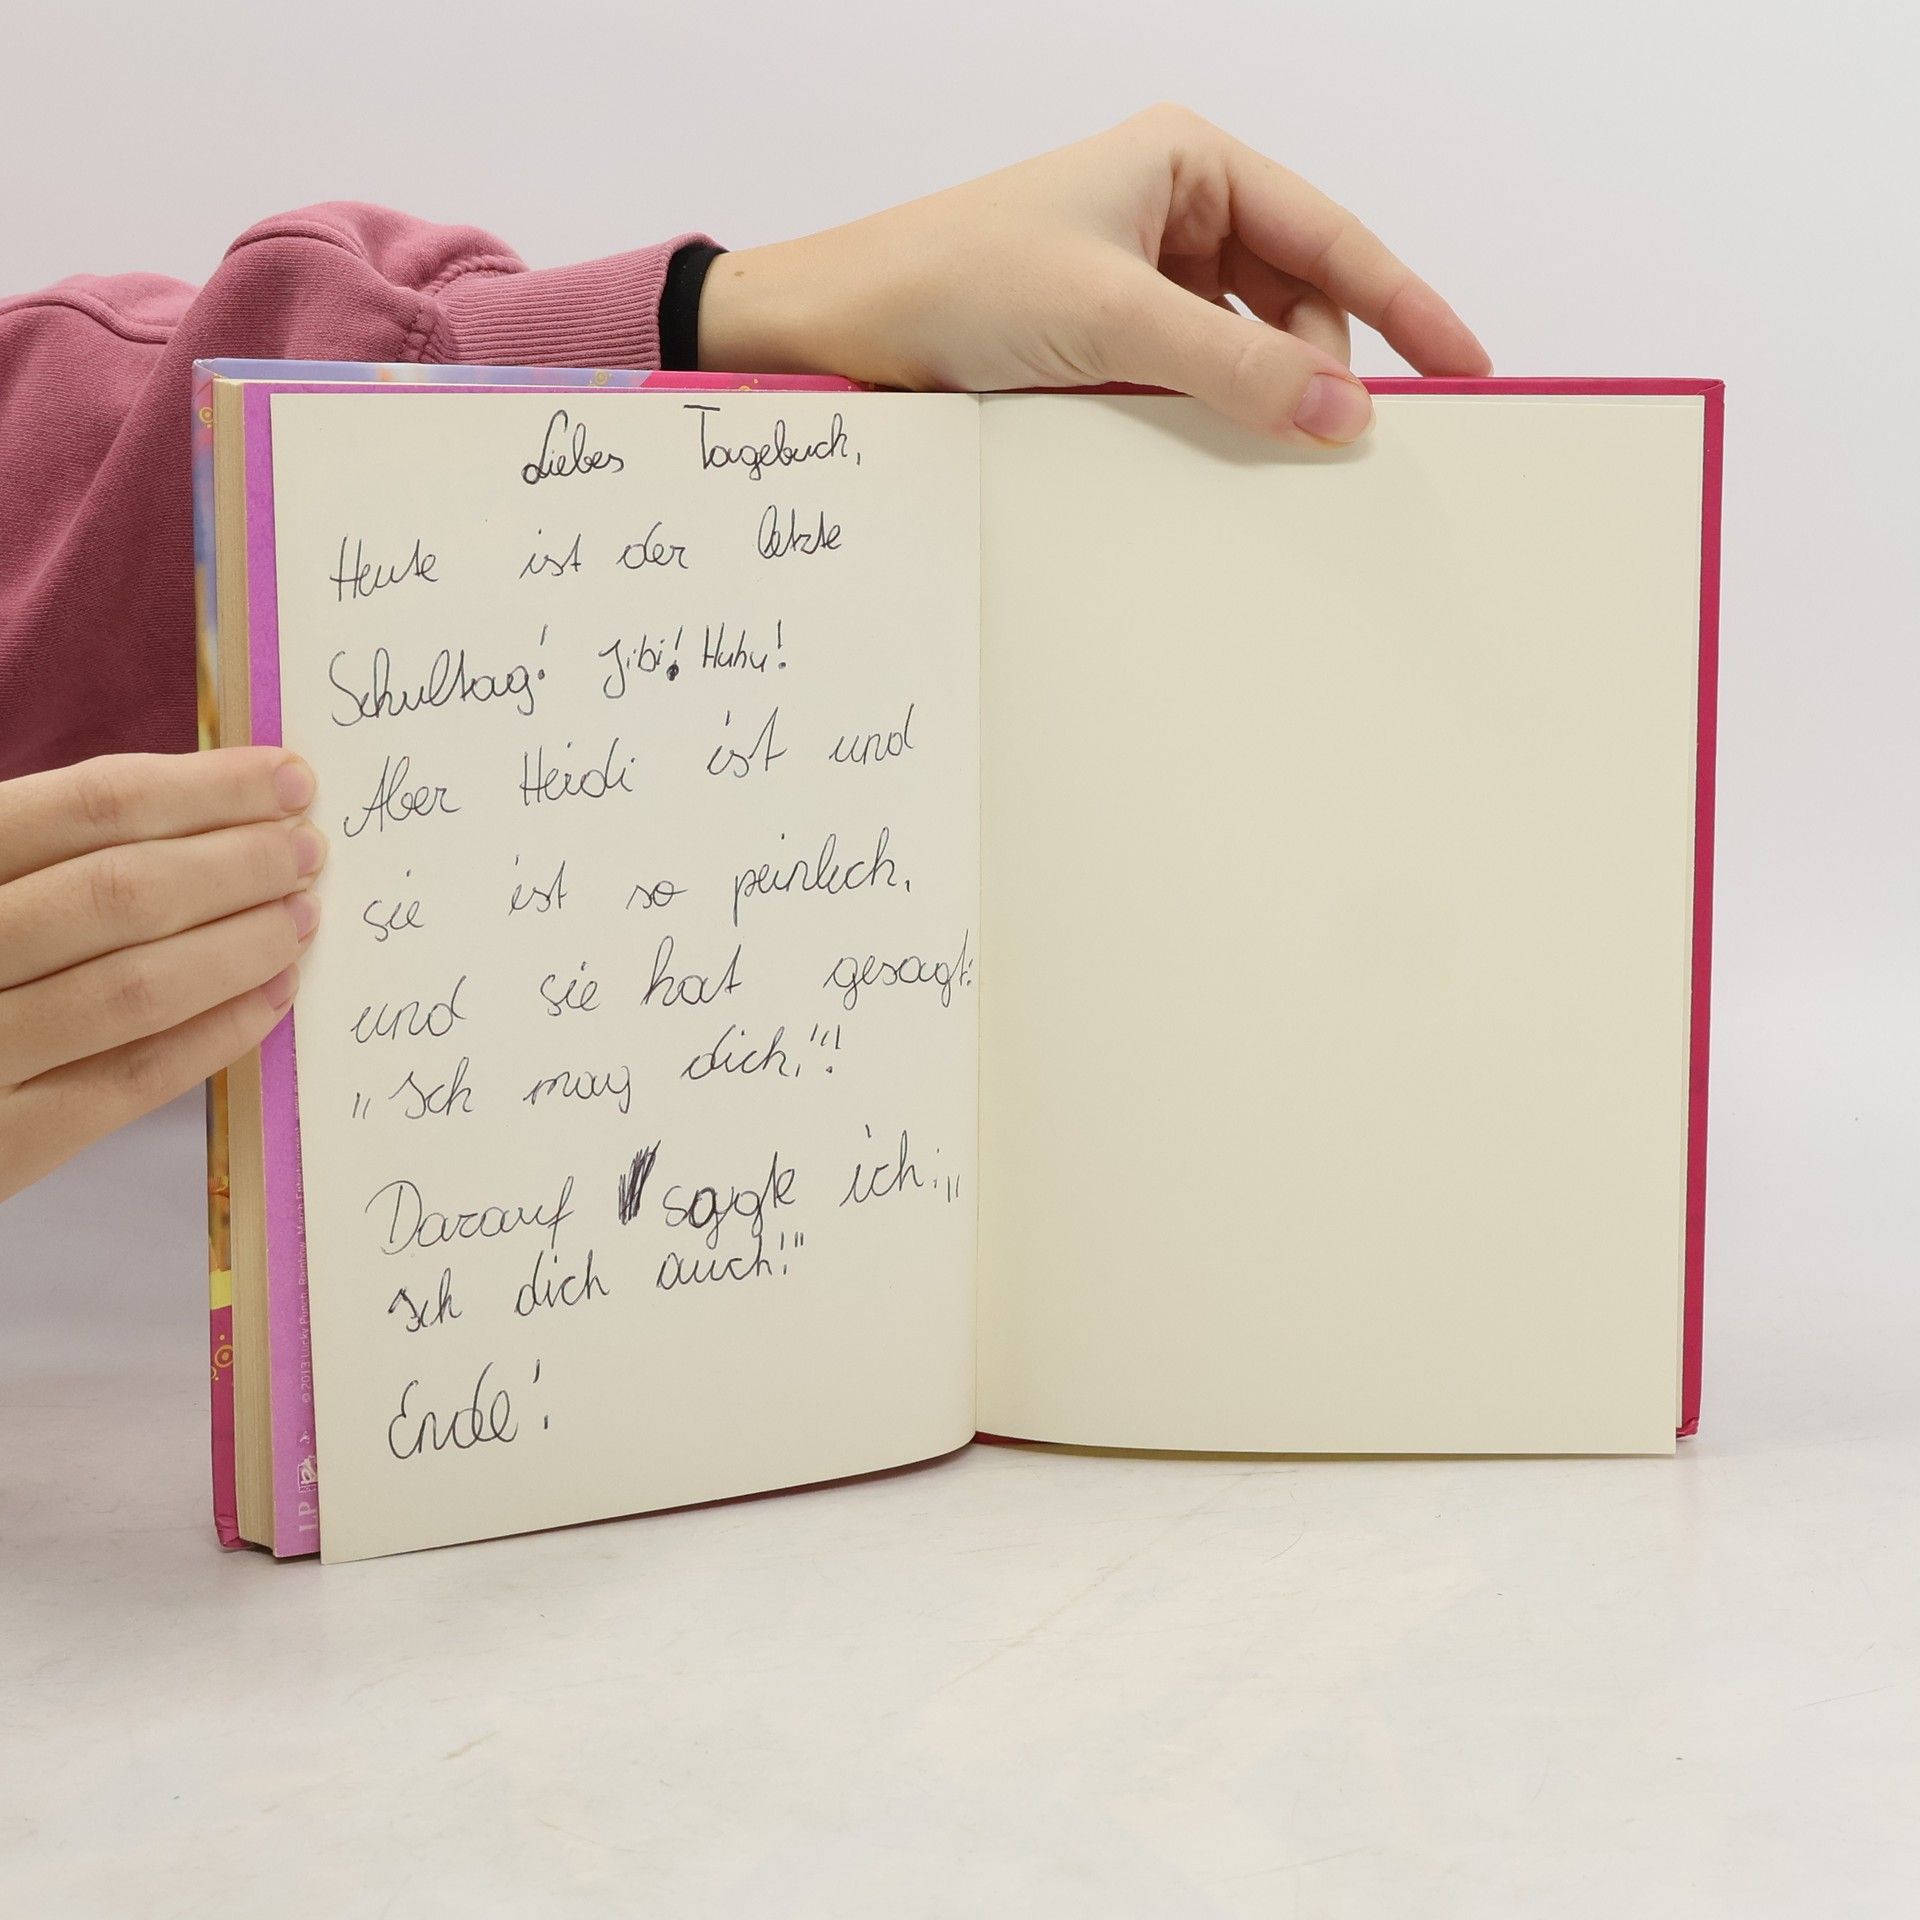 Liebes Tagebuch,
Heute ist der letzte
Schultag! Jibi! Huhu!
Aber Heidi ist und
sie ist so peinlich,
und sie hat gesagt:
„Ich mag dich,"!
Darauf sagte ich: „
Ich dich auch!"
Ende!
© 2013 Lucky Punch, Rainbow, March Entertainment
LP